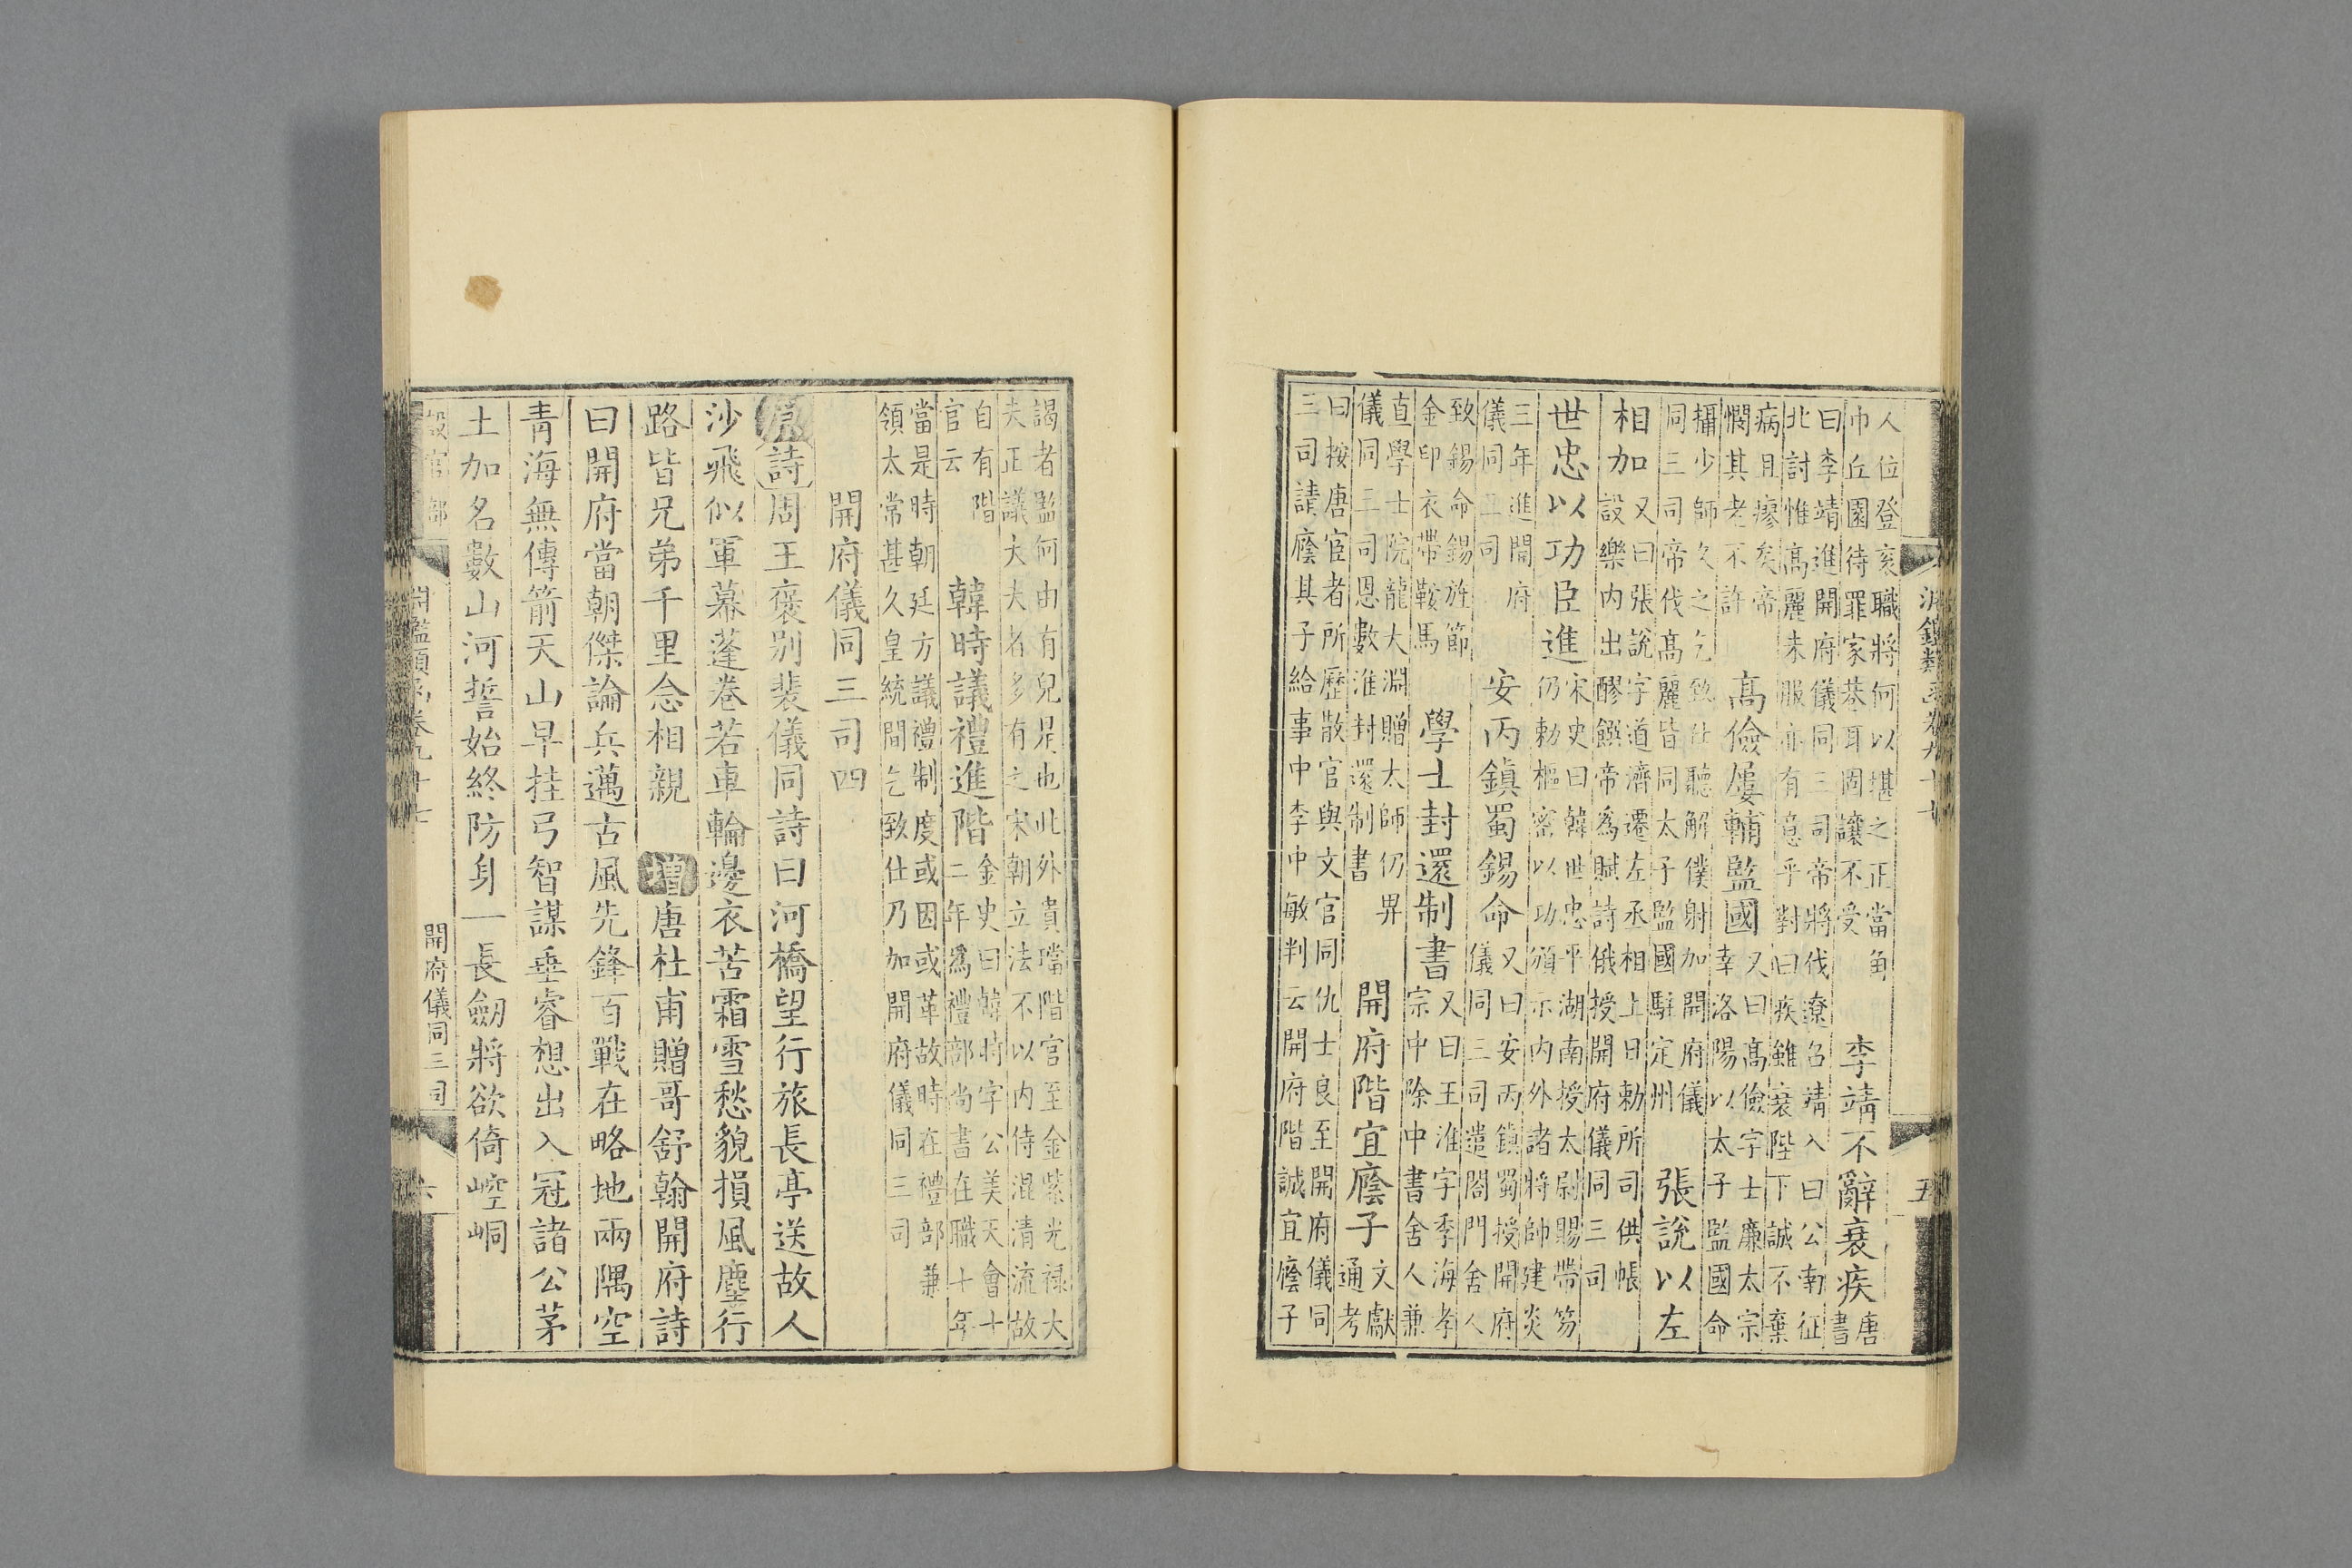 淵鑑類函卷九十七　五
人位登袞職將何以堪之正當角
巾丘園待罪家巷耳固讓不受
李靖不辭衰疾
唐書
曰李靖進開府儀同三司帝將伐遼召靖入曰公南征
北討惟高麗未服亦有意乎對曰疾雖衰陛下誠不棄
病且瘳矣帝
憫其老不許
高儉屢輔監國
又曰高儉字士廉太宗
幸洛陽以太子監國命
攝少師久之乞致仕聽解僕射加開府儀
同三司帝伐高麗皆同太子監國駐定州
張說以左
相加
又曰張說字道濟遷左丞相上日勅所司供帳
設樂內出醪饌帝爲賦詩俄授開府儀同三司
世忠以功臣進
宋史曰韓世忠平湖南授太尉賜帶笏
仍勅樞密以功頒示內外諸將帥建炎
三年進開府
儀同三司
安丙鎮蜀錫命
又曰安丙鎮蜀授開府
儀同三司遣閤門舍人
致錫命錫旌節
金印衣帶鞍馬
學士封還制書
又曰王淮字季海孝
宗中除中書舍人兼
直學士院龍大淵贈太師仍畀
儀同三司恩數淮封還制書
開府階宜廕子
文獻
通考
曰按唐宦者所歷散官與文官同仇士良至開府儀同
三司請廕其子給事中李中敏判云開府階誠宜廕子
謁者監何由有兒是也此外貴璫階官至金紫光祿大
夫正議大夫者多有之宋朝立法不以內侍混清流故
自有階
官云
韓時議禮進階
金史曰韓昉字公美天會十
二年爲禮部尚書在職十年
當是時朝廷方議禮制度或因或革故時在禮部兼
領太常甚久皇統間乞致仕乃加開府儀同三司
開府儀同三司四
原詩周王褒別裴儀同詩曰河橋望行旅長亭送故人
沙飛似軍幕蓬卷若車輪邊衣苦霜雪愁貌損風塵行
路皆兄弟千里念相親　增唐杜甫贈哥舒翰開府詩
曰開府當朝傑論兵邁古風先鋒百戰在略地兩隅空
青海無傳箭天山早挂弓智謀垂睿想出入冠諸公茅
土加名數山河誓始終防身一長劒將欲倚崆峒
設官部　淵鑑類函卷九十七　開府儀同三司　六